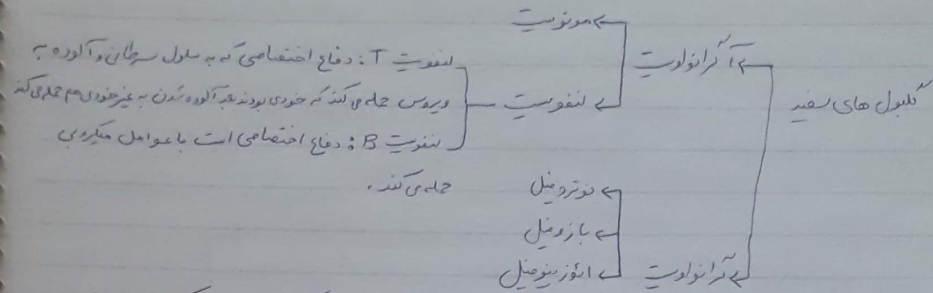 گلبول های سفید
آگرانولوسیت
مونوسیت
لنفوسیت
لنفوسیت T : دفاع اختصاصی که به سلول سرطانی و آلوده به
ویروس حمله می کند که خودی بودند بعد آلوده شدن به غیر خودی هم حمله می کند
لنفوسیت B : دفاع اختصاصی است با عوامل میکروبی
حمله می کند.
گرانولوسیت
نوتروفیل
بازوفیل
ائوزینوفیل